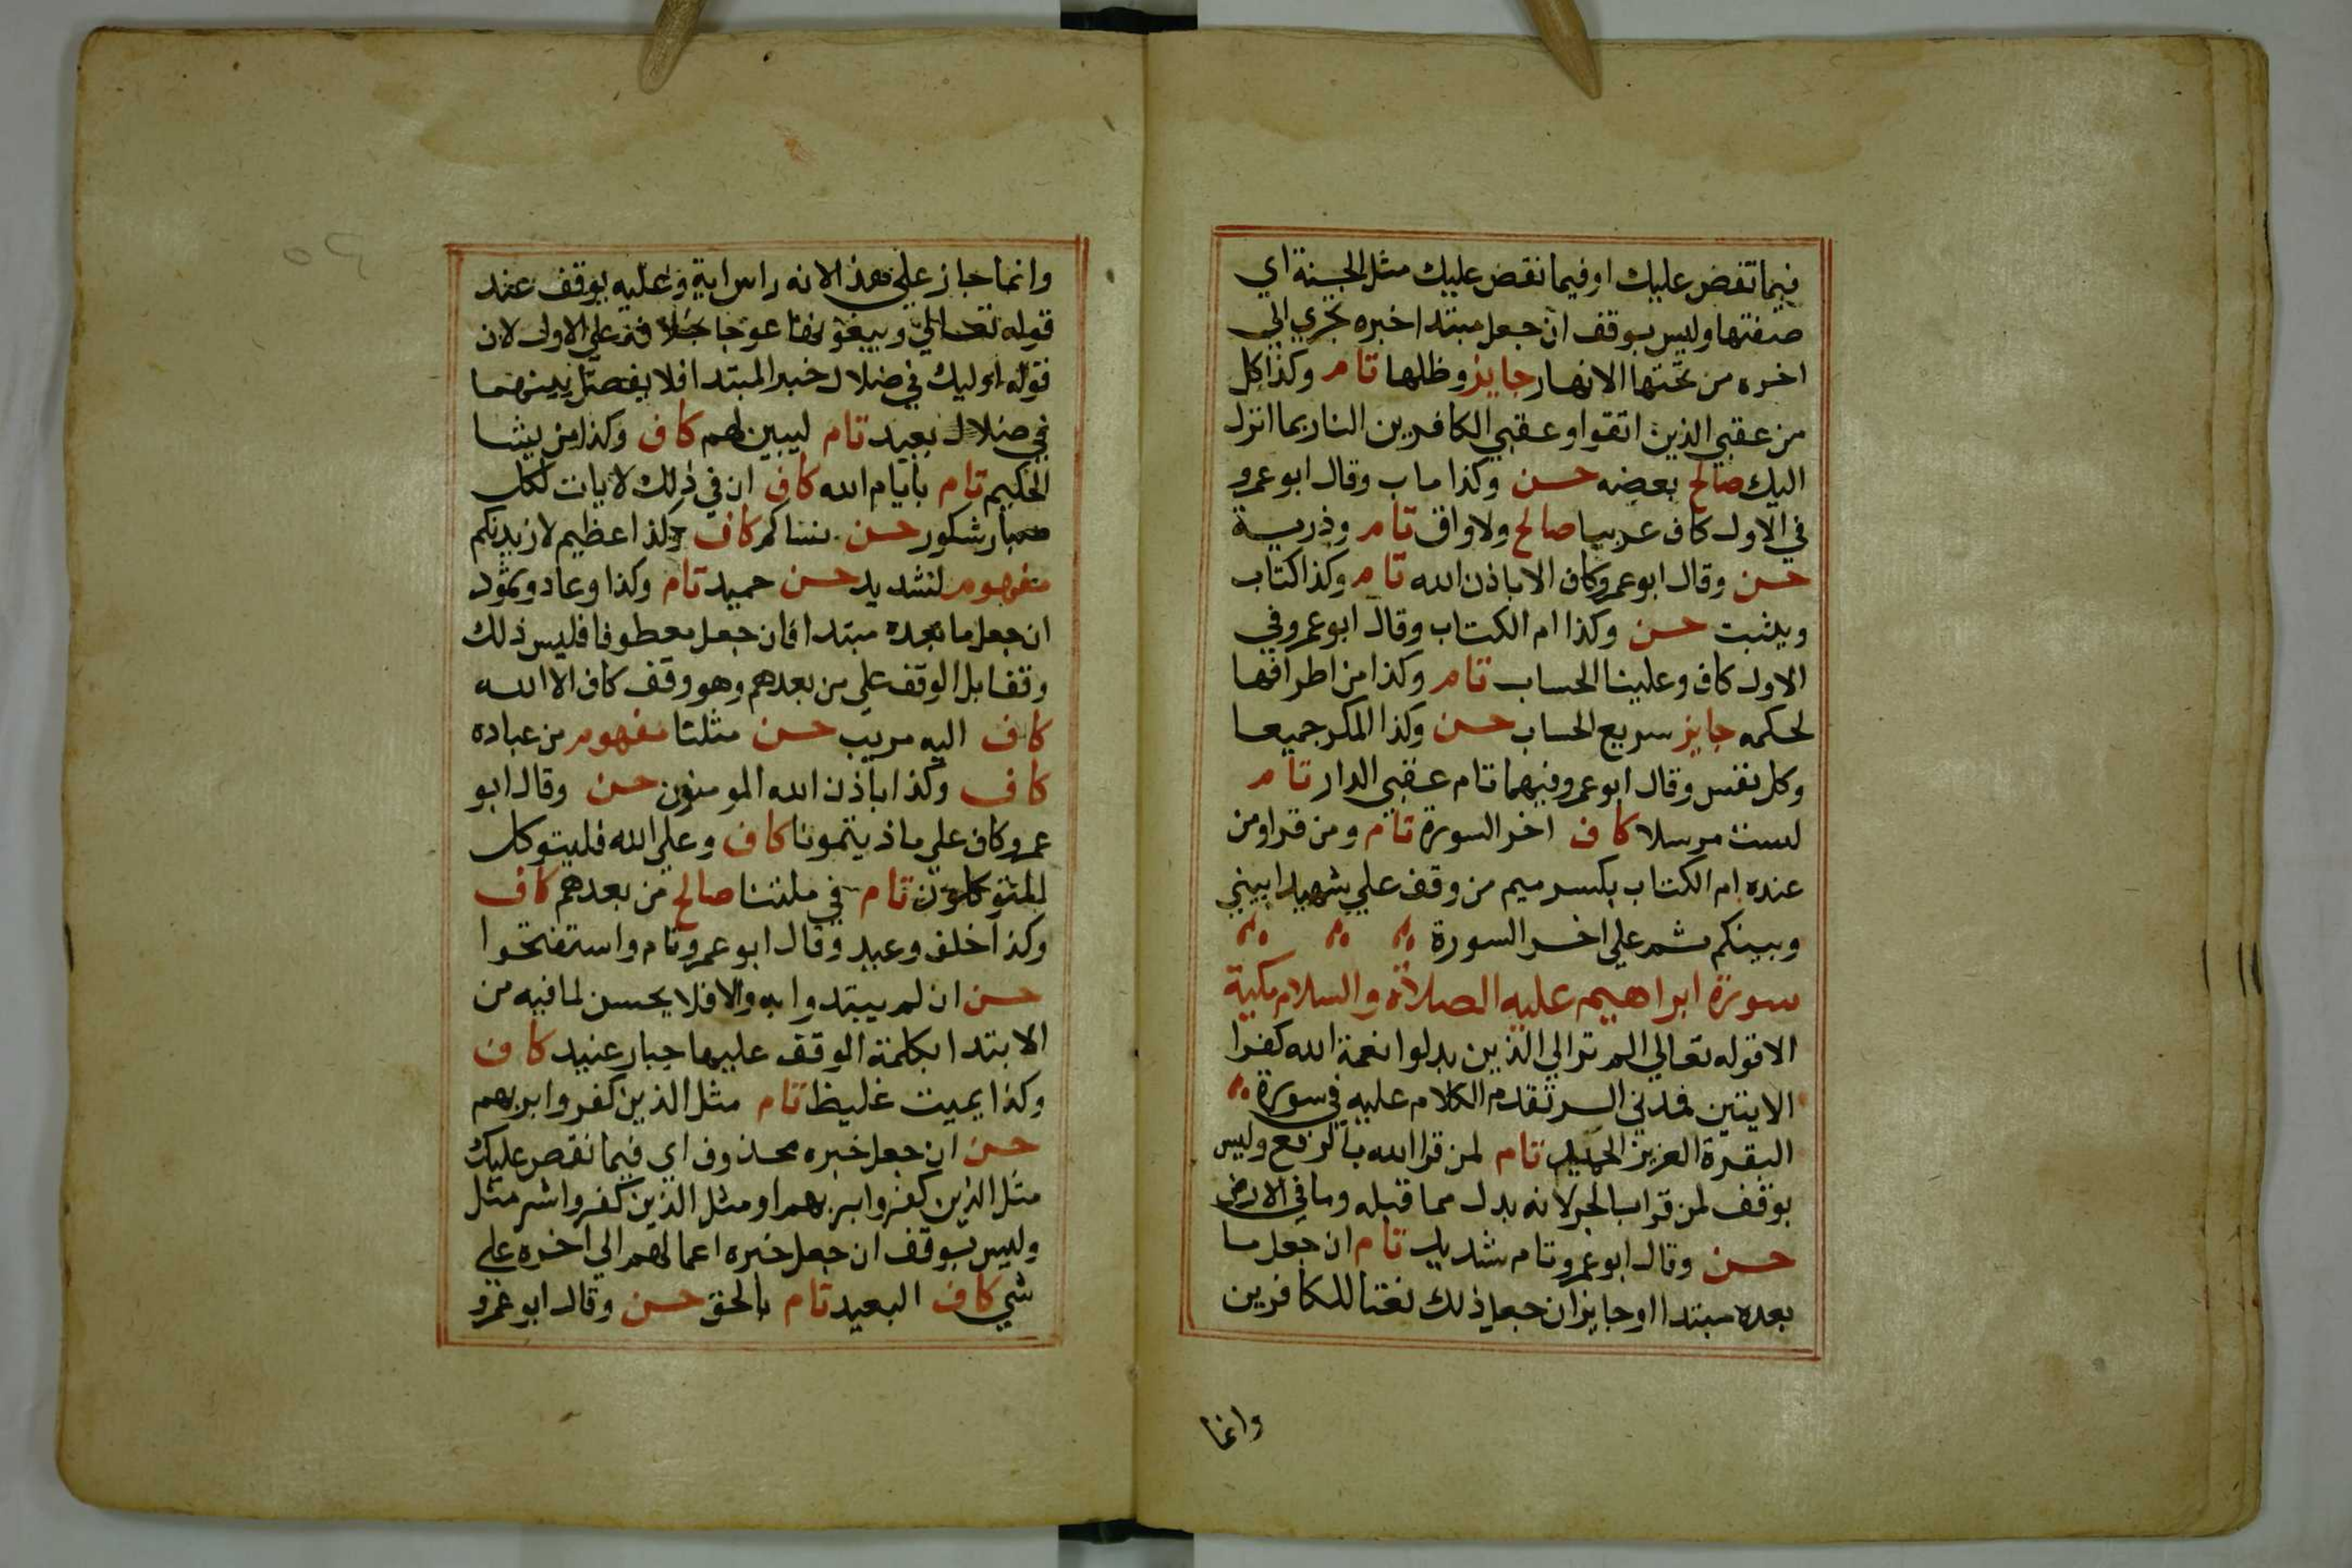 فيما تقص عليك او فيما نقص عليك مثل الجنة اي
صفتها وليس بوقف ان جعل مبتدا خبره تجري الي
اخره من تحتها الانهار جايز وظلها تام وكذا كل
من عقبي الذين اتقوا وعقبي الكافرين النار بما انزل
اليك صالح بعضه حسن وكذا ماب وقال ابو عمرو
في الاول كاف عربيا صالح ولا واق تام وذرية
حسن وقال ابو عمرو كاف الا باذن الله تام وكذا كتاب
ويثبت حسن وكذا ام الكتاب وقال ابو عمرو في
الاول كاف وعلينا الحساب تام وكذا من اطرافها
لحكمه جايز سريع الحساب حسن وكذا المكر جميعا
وكل نفس وقال ابو عمرو فيهما تام عقبي الدار تام
لست مرسلا كاف اخر السورة تام ومن قرا ومن
عنده ام الكتاب بكسر ميم من وقف علي شهيدا بيني
وبينكم ثم علي اخر السورة
سورة ابراهيم عليه الصلاة والسلام مكية
الا قوله تعالي الم تر الي الذين بدلوا نعمة الله كفرا
الايتين فمدني الر تقدم الكلام عليه في سورة
البقرة العزيز الحميد تام لمن قرا الله بالرفع وليس
بوقف لمن قرا بالجر لانه بدل مما قبله وما في الارض
حسن وقال ابو عمرو تام شديد تام ان جعل ما
بعده مبتدا او جايز ان جعل ذلك نعتا للكافرين
وانما
وانما جاز علي هذا لانه راس اية وعليه يوقف عند
قوله تعالي ويبغونها عوجا بخلافه علي الاول لان
قوله اوليك في ضلال خبر المبتدا فلا يفصل بينهما
في ضلال بعيد تام ليبين لهم كاف وكذا من يشا
الحكيم تام بايام الله كاف ان في ذلك لايات لكل
صبار شكور حسن نساكم كاف وكذا عظيم لازيدنكم
مفهوم لشديد حسن حميد تام وكذا وعاد وثمود
ان جعل ما بعده مبتدا فان جعل معطوفا فليس ذلك
وقفا بل الوقف علي من بعدهم وهو وقف كاف الا الله
كاف اليه مريب حسن مثلنا مفهوم من عباده
كاف وكذا باذن الله المومنون حسن وقال ابو
عمرو كاف علي ما اذيتمونا كاف وعلي الله فليتوكل
المتوكلون تام في ملتنا صالح من بعدهم كاف
وكذا خاف وعيد وقال ابو عمرو تام واستفتحوا
حسن ان لم يبتدوا به والا فلا يحسن لما فيه من
الابتدا بكلمة الوقف عليها جبار عنيد كاف
وكذا بميت غليظ تام مثل الذين كفروا بربهم
حسن ان جعل خبره محذوف اي فيما نقص عليك
مثل الذين كفروا بربهم او مثل الذين كفروا شر مثل
وليس بوقف ان جعل خبره اعمالهم الي اخره علي
شي كاف البعيد تام بالحق حسن وقال ابو عمرو